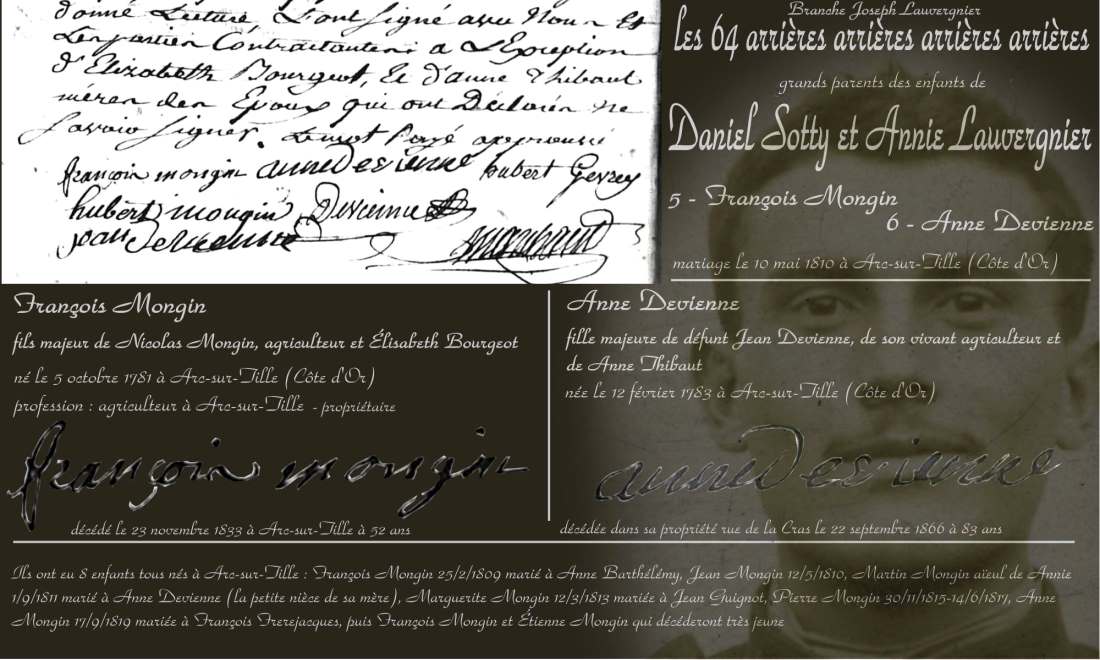 donné Lecture, & ont signé avec Nous et
Les parties Contractantes à L'Exception
d'Elizabeth Bourgeot, Et d'anne Thibaut
mères des Epoux qui ont Déclarés ne
Savoir signer.
françois mongin anne Devienne hubert Gevrey
hubert mongin Devienne
jean Devienne
Branche Joseph Lauvergnier
les 64 arrières arrières arrières arrières
grands parents des enfants de
Daniel Sotty et Annie Lauvergnier
5 - François Mongin
6 - Anne Devienne
mariage le 10 mai 1810 à Arc-sur-Tille (Côte d'Or)
François Mongin
fils majeur de Nicolas Mongin, agriculteur et Élisabeth Bourgeot
né le 5 octobre 1781 à Arc-sur-Tille (Côte d'Or)
profession : agriculteur à Arc-sur-Tille - propriétaire
françois mongin
décédé le 23 novembre 1833 à Arc-sur-Tille à 52 ans
Anne Devienne
fille majeure de défunt Jean Devienne, de son vivant agriculteur et
de Anne Thibaut
née le 12 février 1783 à Arc-sur-Tille (Côte d'Or)
anne Devienne
décédée dans sa propriété rue de la Cras le 22 septembre 1866 à 83 ans
Ils ont eu 8 enfants tous nés à Arc-sur-Tille : François Mongin 25/2/1809 marié à Anne Barthélémy, Jean Mongin 12/5/1810, Martin Mongin aïeul de Annie
1/9/1811 marié à Anne Devienne (la petite nièce de sa mère), Marguerite Mongin 12/3/1813 mariée à Jean Guignot, Pierre Mongin 30/11/1815-14/6/1817, Anne
Mongin 17/9/1819 mariée à François Frerejacques, puis François Mongin et Étienne Mongin qui décéderont très jeune